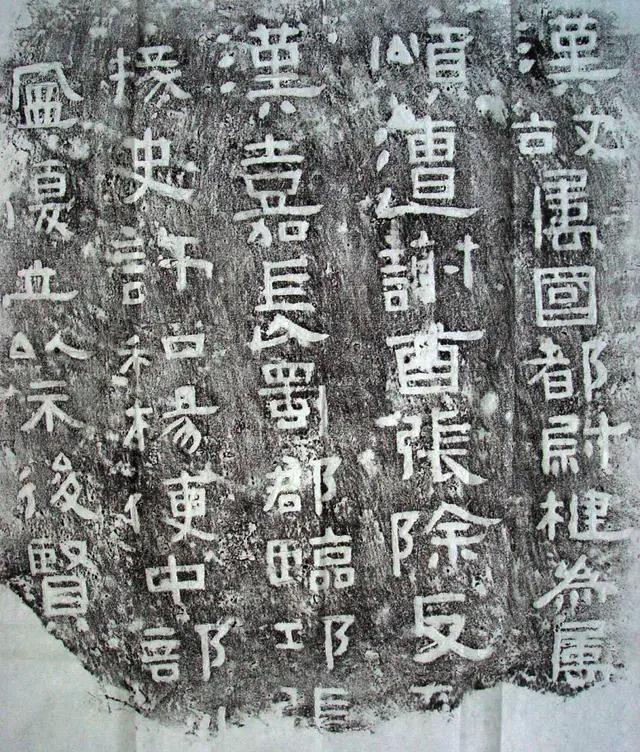 漢故屬國都尉楗為屬
頌遭謝酋張除反
漢嘉長蜀郡臨邛張
掾史許和楊便中部
復立以示後賢